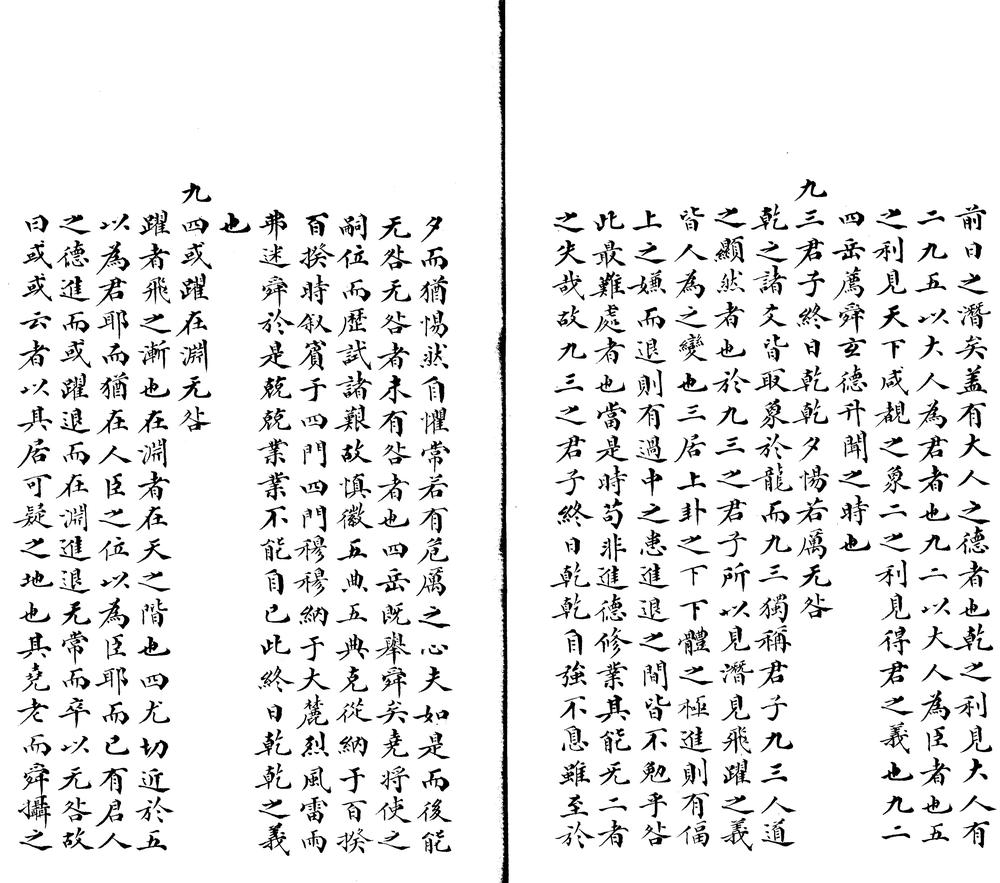 前日之潛矣蓋有大人之德者也乾之利見大人有
二九五以大人為君者也九二以大人為臣者也五
之利見天下咸覩之象二之利見得君之義也九二
四岳薦舜玄德升聞之時也
九三君子終日乾乾夕惕若厲无咎
乾之諸爻皆取象於龍而九三獨稱君子九三人道
之顯然者也於九三之君子所以見潛見飛躍之義
皆人為之變也三居上卦之下下體之極進則有偪
上之嫌而退則有過中之患進退之間皆不勉乎咎
此最難處者也當是時苟非進德修業其能无二者
之失哉故九三之君子終日乾乾自強不息雖至於
夕而猶惕然自懼常若有危厲之心夫如是而後能
无咎无咎者未有咎者也四岳既舉舜矣堯將使之
嗣位而歷試諸艱故慎徽五典五典克從納于百揆
百揆時叙賓于四門四門穆穆納于大麓烈風雷雨
弗迷舜於是兢兢業業不能自已此終日乾乾之義
也
九四或躍在淵无咎
躍者飛之漸也在淵者在天之階也四尤切近於五
以為君耶而猶在人臣之位以為臣耶而已有君人
之德進而或躍退而在淵進退无常而卒以无咎故
曰或或云者以其居可疑之地也其堯老而舜攝之